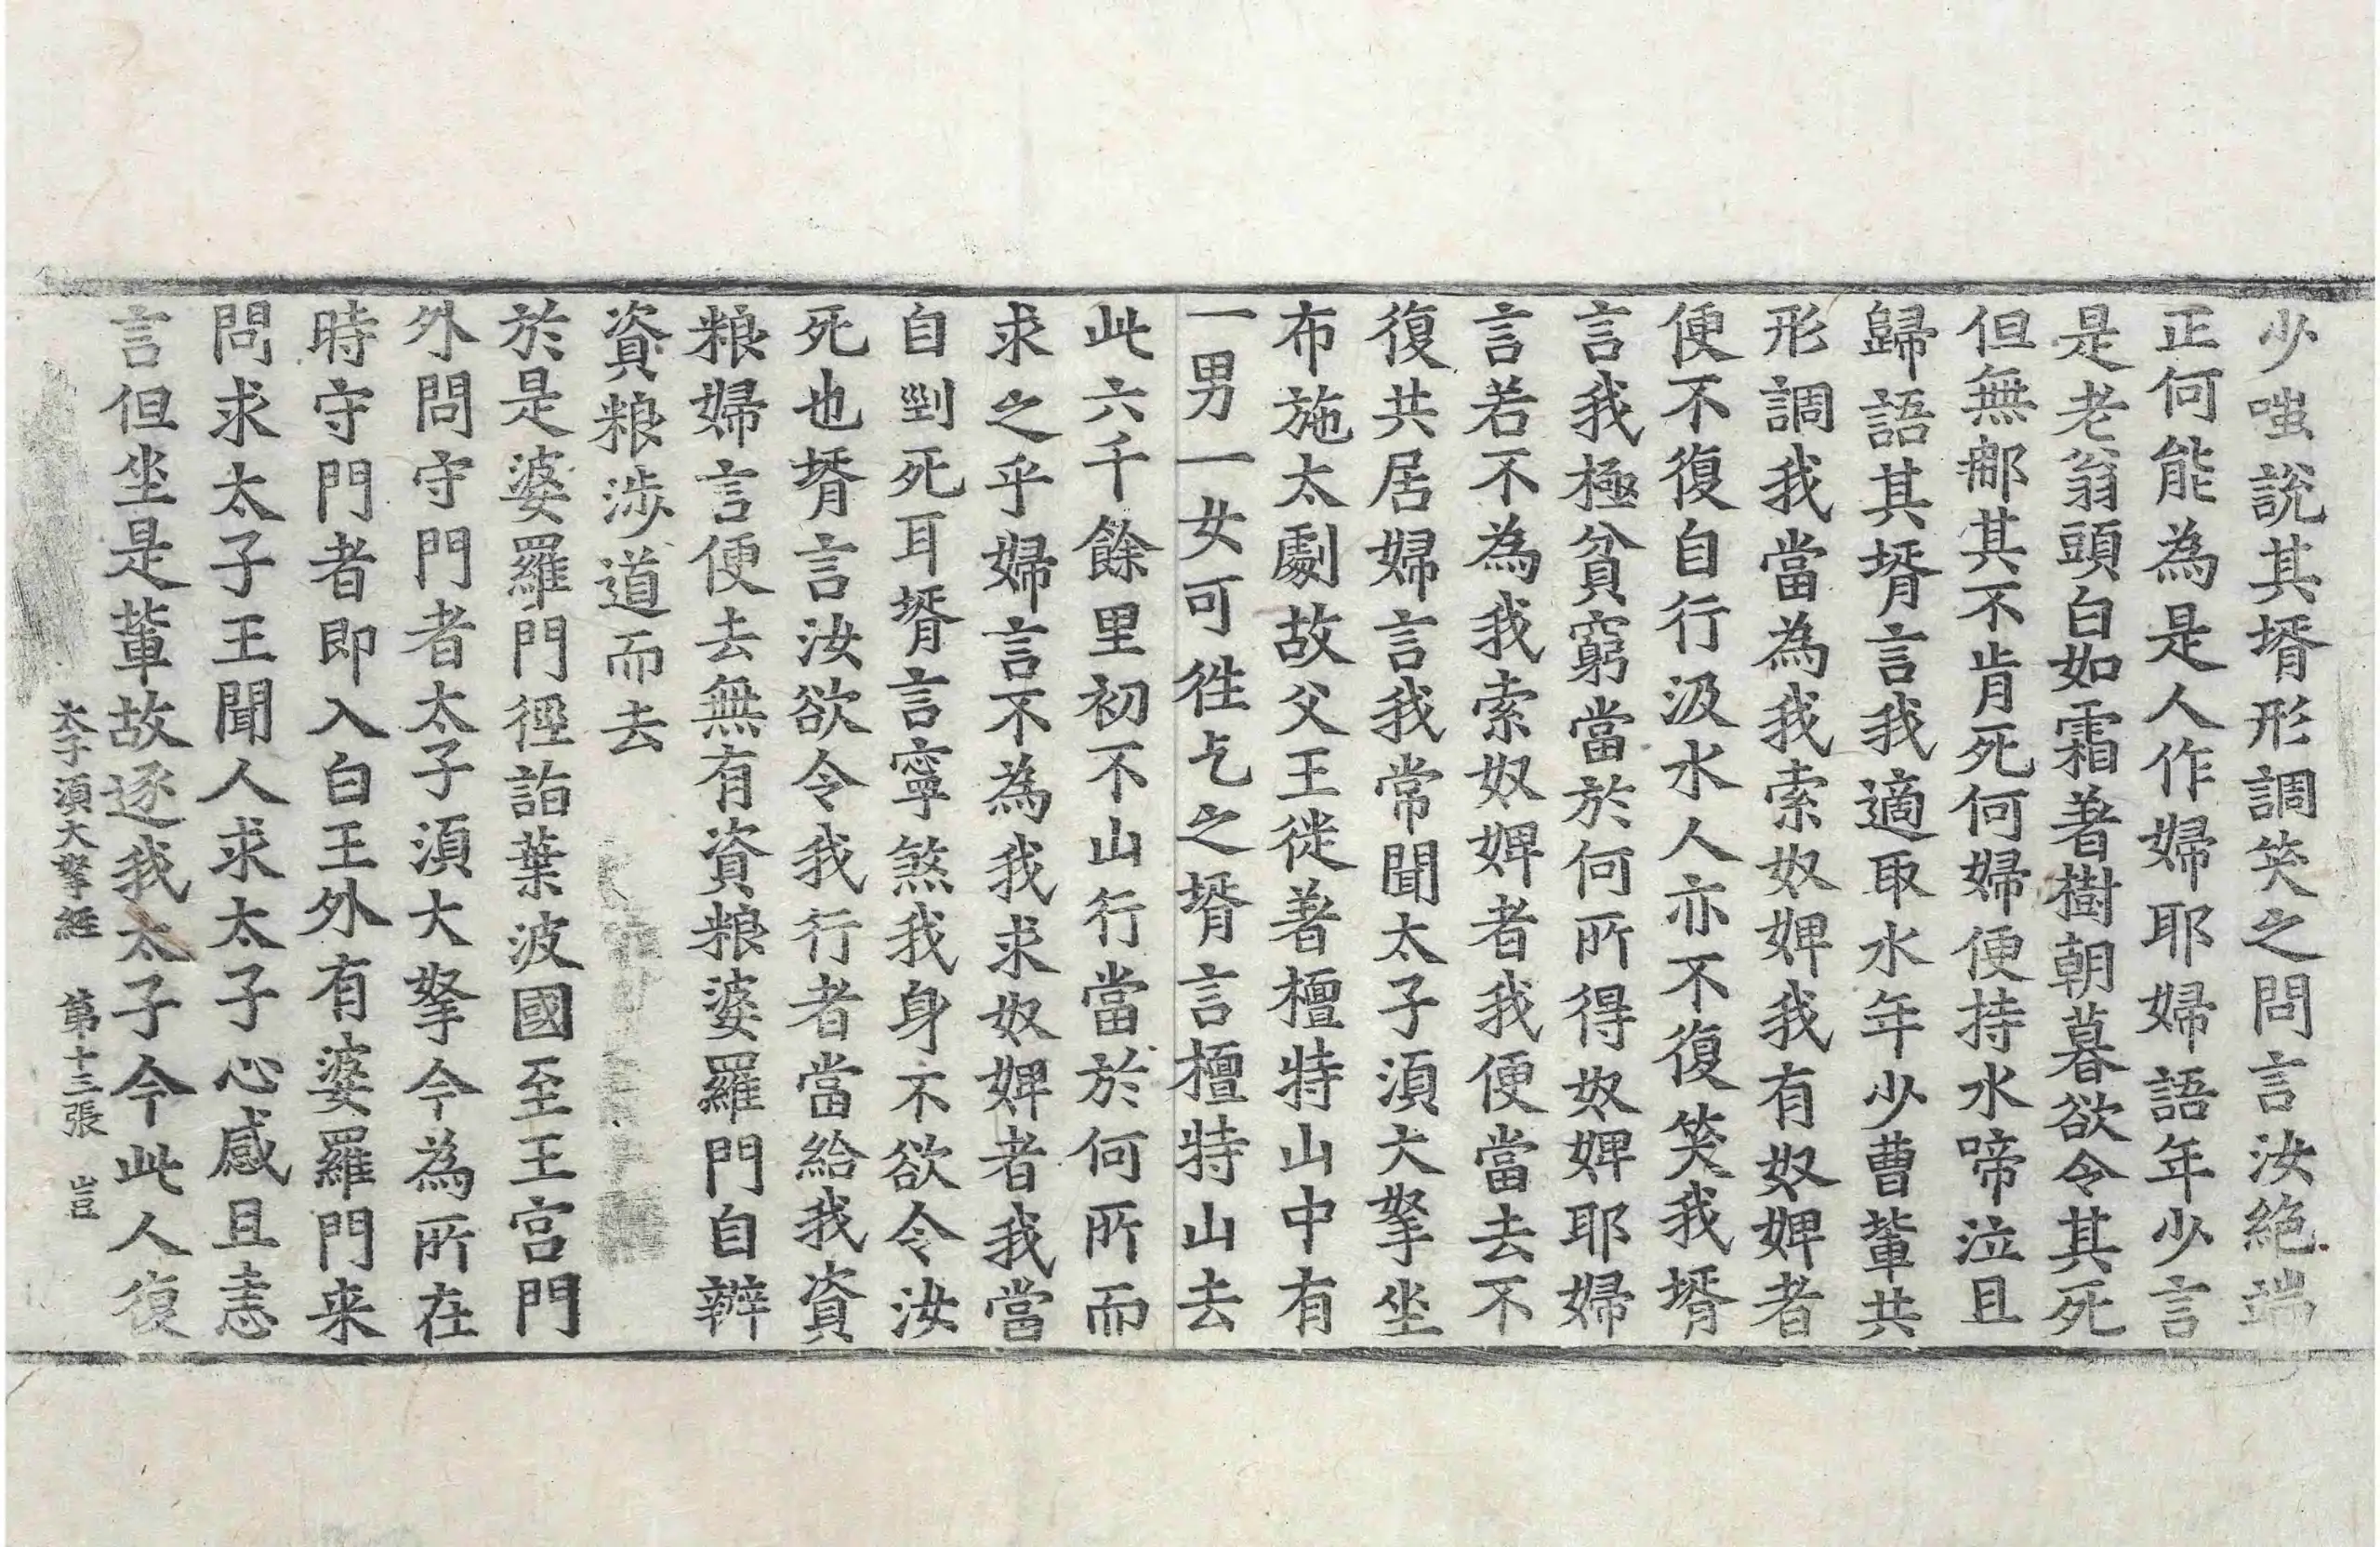 少嗤說其壻形調笑之問言汝絕端
正何能為是人作婦耶婦語年少言
是老翁頭白如霜著樹朝暮欲令其死
但無那其不肯死何婦便持水啼泣且
歸語其壻言我適取水年少曹輩共
形調我當為我索奴婢我有奴婢者
便不復自行汲水人亦不復笑我壻
言我極貧窮當於何所得奴婢耶婦
言若不為我索奴婢者我便當去不
復共居婦言我常聞太子須大拏坐
布施太劇故父王徙著檀特山中有
一男一女可徃乞之壻言檀特山去
此六千餘里初不山行當於何所而
求之乎婦言不為我求奴婢者我當
自剄死耳壻言寧煞我身不欲令汝
死也壻言汝欲令我行者當給我資
粮婦言便去無有資粮婆羅門自辦
資粮涉道而去
於是婆羅門徑詣葉波國至王宮門
外問守門者太子須大拏今為所在
時守門者即入白王外有婆羅門来
問求太子王聞人求太子心感且恚
言但坐是輩故逐我太子今此人復
太子須大拏經 第十三張 豈